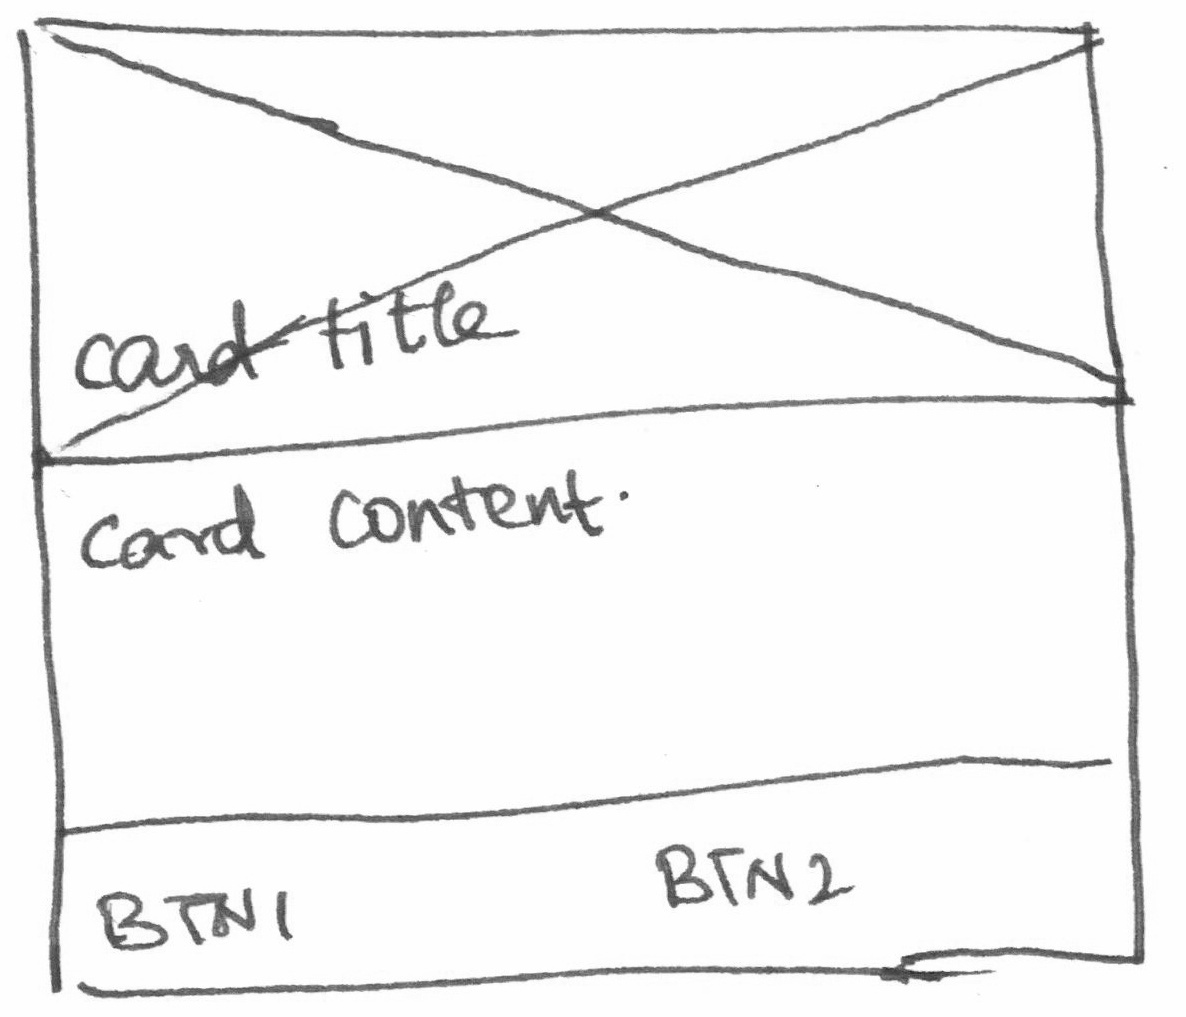 card title
Card content.
BTN1
BTN2